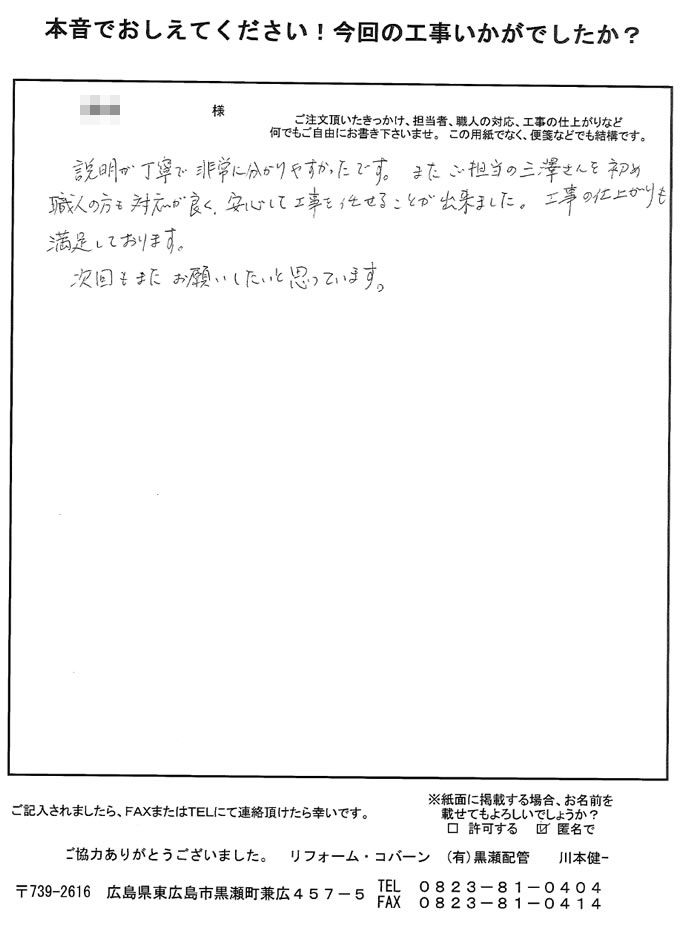 本音でおしえてください！今回の工事いかがでしたか？
様
ご注文頂いたきっかけ、担当者、職人の対応、工事の仕上がりなど
何でもご自由にお書き下さいませ。この用紙でなく、便箋などでも結構です。
説明が丁寧で非常に分かりやすかったです。またご担当の三澤さんを初め
職人の方も対応が良く、安心して工事を任せることが出来ました。工事の仕上がりも
満足しております。
次回もまたお願いしたいと思っています。
ご記入されましたら、FAXまたはTELにて連絡頂けたら幸いです。
※紙面に掲載する場合、お名前を
載せてもよろしいでしょうか？
□ 許可する ☑ 匿名で
ご協力ありがとうございました。 リフォーム・コバーン （有）黒瀬配管 川本健一
〒739-2616 広島県東広島市黒瀬町兼広４５７－５
TEL ０８２３－８１－０４０４
FAX ０８２３－８１－０４１４